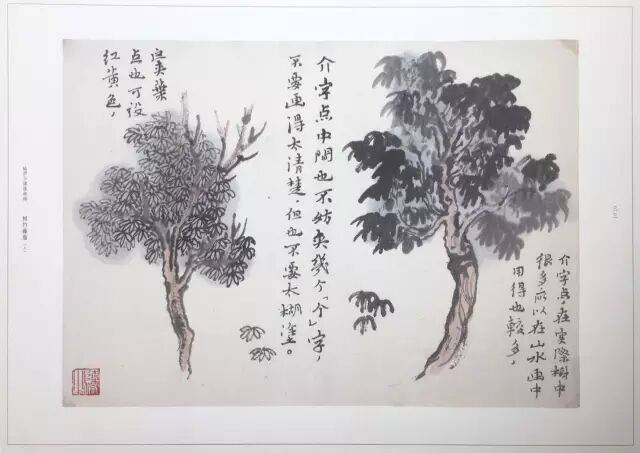 介字点，在实際樹中
很多所以在山水画中
用得也較多，
介字点中間也不妨夾幾个「个」字，
不要画得太清楚，但也不要太糊塗。
這夾葉
点也可設
红黃色，